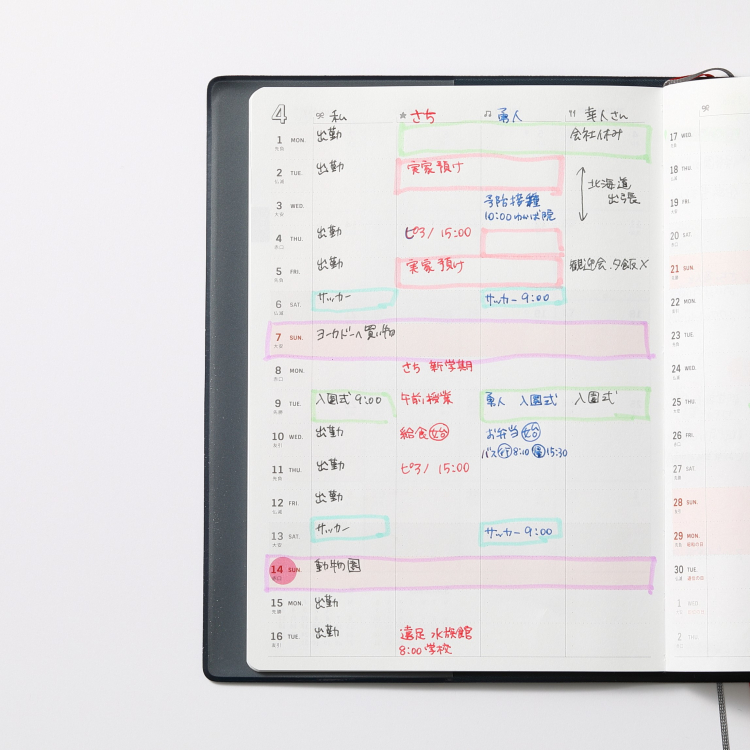 4 私 さち 勇人 幸人さん
1 MON. 先負 出勤 会社休み
2 TUE. 仏滅 出勤 実家預け
北海道
出張
3 WED. 大安 予防接種
10:00 ゆめは院
4 THU. 赤口 出勤 ピアノ 15:00
5 FRI. 先負 出勤 実家預け 歓迎会 夕飯×
6 SAT. 仏滅 サッカー サッカー 9:00
7 SUN. 大安 ヨーカドーへ買い物
8 MON. 赤口 さち 新学期
9 TUE. 先勝 入園式 9:00 午前授業 勇人 入園式 入園式
10 WED. 友引 出勤 給食始 お弁当始
バス行 8:10 帰 15:30
11 THU. 先負 出勤 ピアノ 15:00
12 FRI. 仏滅 出勤
13 SAT. 大安 サッカー サッカー 9:00
14 SUN. 赤口 動物園
15 MON. 先勝 出勤
16 TUE. 友引 出勤 遠足 水族館
8:00 学校
17 WED.
18 THU.
19 FRI.
20 SAT.
21 SUN.
22 MON.
23 TUE.
24 WED.
25 THU.
26 FRI.
27 SAT.
28 SUN.
29 MON. 昭和の日
30 TUE.
1 WED.
2 THU.